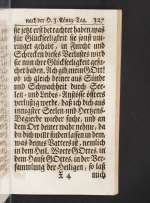 nach der H. 3. König-Tag. 327
sie jetzt erst betrachtet haben was
sie Glückseeligkeit sie sonst un-
ruhget gehabt, in Furcht und
Schrecken dieses Verlustes wird
sie nun ihre Glückseeligkeit gesu-
chet haben. Ach gib mein GOtt!
ob ich gleich deiner aus Elend
und Schwachheit durch See-
len- und Leibes-Anstösse öffters
verlustig werde, daß ich dich aus
inngster Seelen- und Hertzens-
Begierde wieder suche, und an
dem Ort deiner wahrnehme, da
du dich wilst finden lassen in dem,
was deines Vatters ist, nemlich
in dem Heil. Wort GOttes, in
dem Hauß GOttes, in der Ver-
sammlung der Heiligen; so laß
X 4 mich